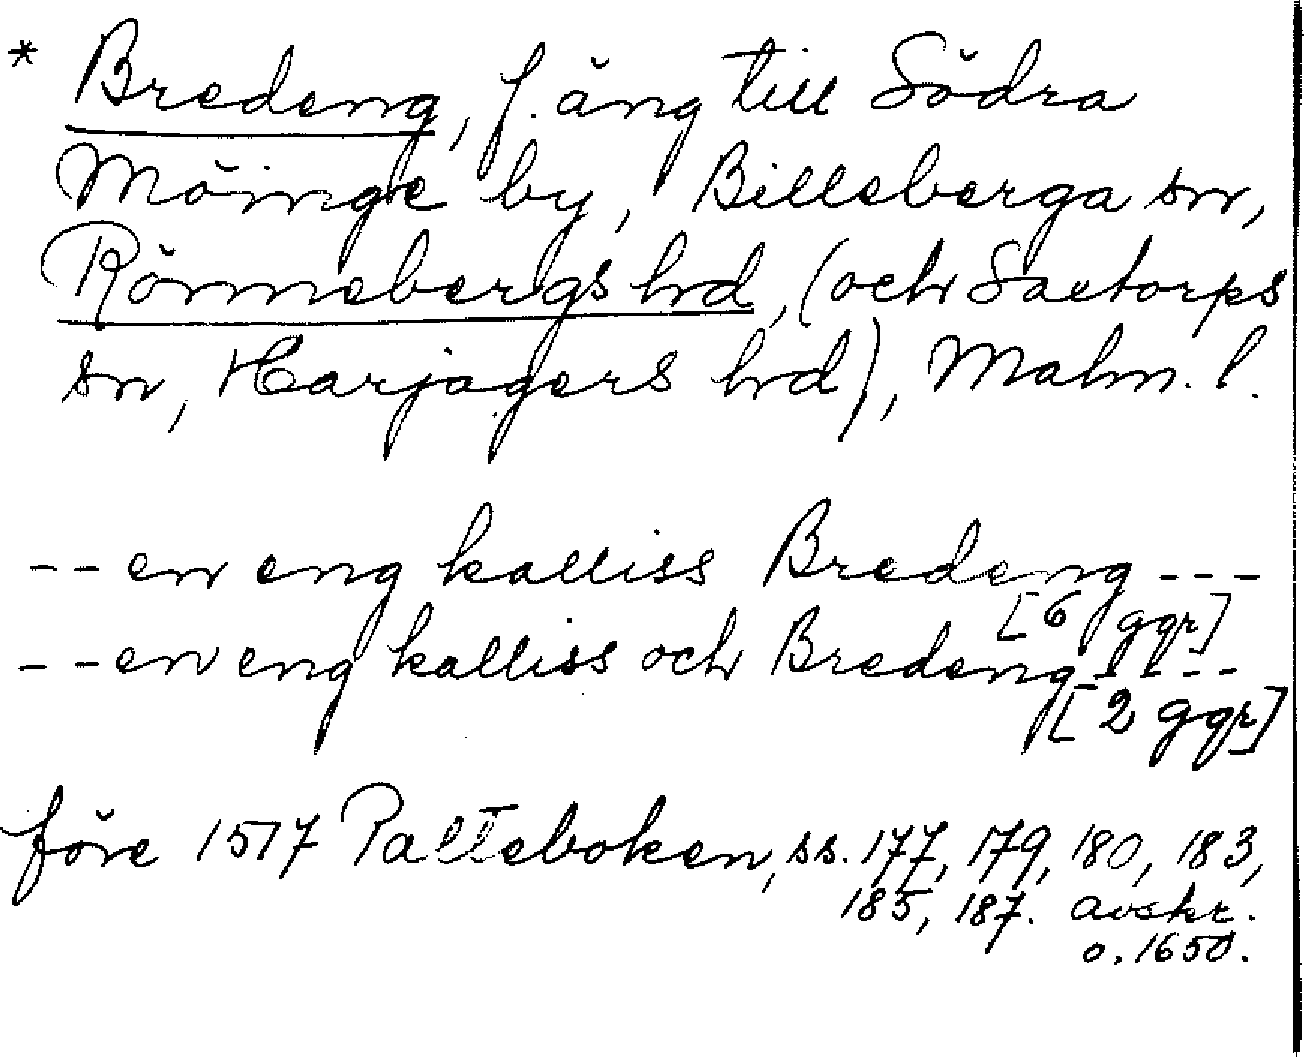 * Bredeng, f. äng till Södra
Möinge by, Billeberga sn,
Rönnebergs hrd, (och Saxtorps
sn, Harjagers hrd), Malm. l.
-- en eng kalliss Bredeng ---
[6 ggr]
-- en eng kalliss och Bredeng ----
[2 ggr]
före 1517 Palteboken, ss. 177, 179, 180, 183,
185, 187. avskr.
o. 1650.